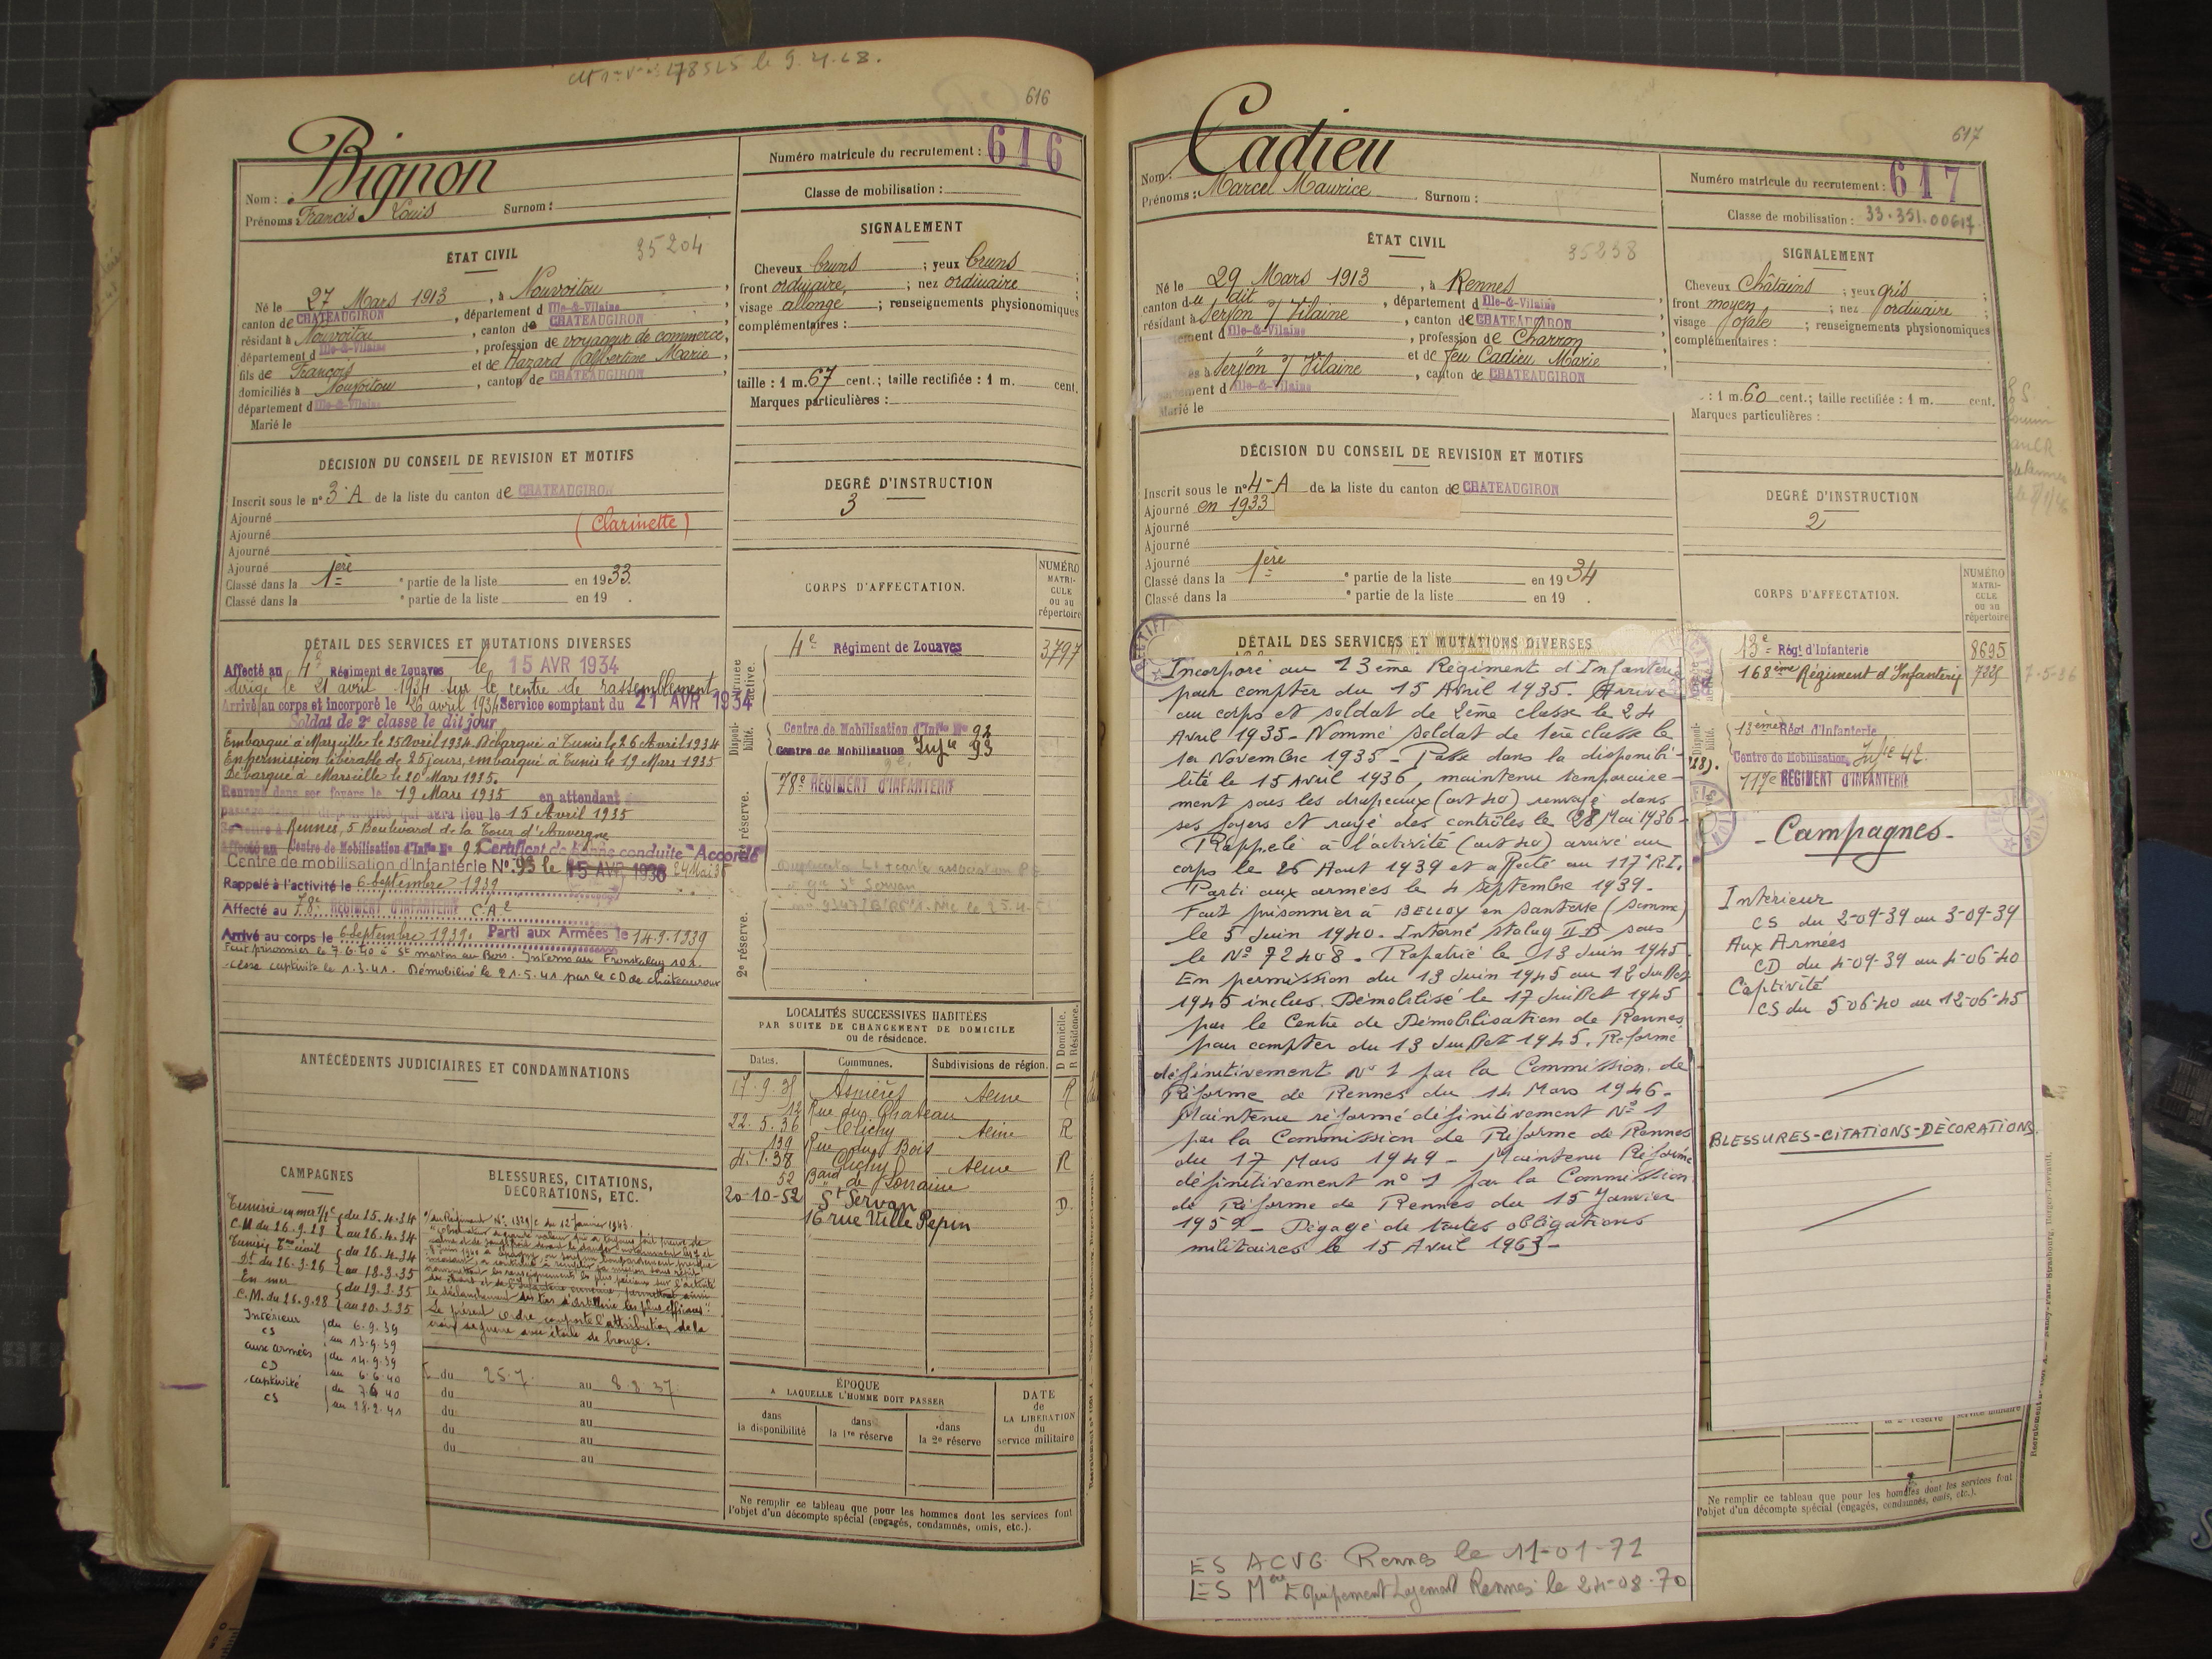 616
Bignon
Nom :
Prénoms : Francis Louis Surnom :
Numéro matricule du recrutement : 616
Classe de mobilisation :
ÉTAT CIVIL
35204
Né le 27 Mars 1913, à Nouvoitou,
canton de CHATEAUGIRON, département d Ille-&-Vilaine
résidant à Nouvoitou, canton de CHATEAUGIRON
département d Ille-&-Vilaine, profession de voyageur de commerce,
fils de François et de Hazard Albertine Marie,
domiciliés à Nouvoitou, canton de CHATEAUGIRON
département d Ille-&-Vilaine
Marié le
SIGNALEMENT
Cheveux bruns ; yeux bruns ;
front ordinaire, ; nez ordinaire ;
visage allongé ; renseignements physionomiques
complémentaires :
taille : 1 m. 67 cent.; taille rectifiée : 1 m. cent.
Marques particulières :
DÉCISION DU CONSEIL DE REVISION ET MOTIFS
Inscrit sous le n° 3-A de la liste du canton de CHATEAUGIRON
Ajourné
(Clarinette)
Ajourné
Ajourné
Ajourné
Classé dans la 1ère e partie de la liste en 1933.
Classé dans la e partie de la liste en 19 .
DEGRÉ D'INSTRUCTION
3
CORPS D'AFFECTATION.
NUMÉRO MATRICULE ou au répertoire
Armée active.
4e Régiment de Zouaves 3797
Disponibilité.
Centre de Mobilisation d'Infie No 92
Centre de Mobilisation Infie 93
78e REGIMENT D'INFANTERIE
2e réserve.
DÉTAIL DES SERVICES ET MUTATIONS DIVERSES
Affecté au 4e Régiment de Zouaves le 15 AVR 1934
dirigé le 21 avril 1934 sur le centre de rassemblement
Arrivé au corps et incorporé le 26 avril 1934 Service comptant du 21 AVR 1934
Soldat de 2e classe le dit jour
Embarqué à Marseille le 25 Avril 1934. Débarqué à Tunis le 26 Avril 1934
En permission libérable de 25 jours, embarqué à Tunis le 19 Mars 1935
Débarqué à Marseille le 20 Mars 1935.
Renvoyé dans ses foyers le 19 Mars 1935 en attendant
qui aura lieu le 15 Avril 1935
Rennes, 5 Boulevard de la Tour d'Auvergne
Affecté au Centre de Mobilisation d'Infie No 92 Certificat de bonne conduite "Accordé"
Centre de mobilisation d'Infanterie N° 93 le 15 AVR 1936
Rappelé à l'activité le 6 Septembre 1939
Affecté au 78e REGIMENT D'INFANTERIE C.A2
Arrivé au corps le 6 Septembre 1939. Parti aux Armées le 14-9-1939
Fait prisonnier le 7.6.40 à St martin au Bois. Interné au Fronstalag 101.
captivité le 1.3.41. Démobilisé le 21.5.41 par le CD de châteauroux
ANTÉCÉDENTS JUDICIAIRES ET CONDAMNATIONS
LOCALITÉS SUCCESSIVES HABITÉES
PAR SUITE DE CHANGEMENT DE DOMICILE
ou de résidence.
D Domicile. R Résidence.
Dates. Communes. Subdivisions de région.
17.9.35 Asnières Seine R
12 Rue du Chateau
22.5.36 Clichy Seine R
139 Rue du Bois
4.1.38 Clichy Seine R
52 Bard de Lorraine
20-10-52 St Servan D.
16 rue Ville Pépin
CAMPAGNES
Tunisie en mer 1/2 c du 25.4.34
C.M. du 26.9.28 au 26.4.34
du 26.4.34
Dt du 26.3.26 au 18.3.35
En mer du 19.3.35
C.M. du 26.9.28 au 20.3.35
Intérieur du 6.9.39
CS au 13.9.39
aux armées du 14.9.39
CD au 6.6.40
captivité du 7.6.40
CS au 28.2.41
BLESSURES, CITATIONS,
DÉCORATIONS, ETC.
Le présent ordre comporte l'attribution de la
croix de guerre avec étoile de bronze.
du 25.7. au 8.8.37.
du au
du au
du au
du au
au
ÉPOQUE
A LAQUELLE L'HOMME DOIT PASSER
dans la disponibilité
dans la 1re réserve
dans la 2e réserve
DATE de LA LIBÉRATION du service militaire
Ne remplir ce tableau que pour les hommes dont les services font
l'objet d'un décompte spécial (engagés, condamnés, omis, etc.).
617
Cadieu
Nom :
Prénoms : Marcel Maurice Surnom :
Numéro matricule du recrutement : 617
Classe de mobilisation : 33.351.00617
ÉTAT CIVIL
35238
Né le 29 Mars 1913, à Rennes
canton du dit, département d Ille-&-Vilaine
résidant à Servon s/ Vilaine, canton de CHATEAUGIRON
Ille-&-Vilaine, profession de Charron
et de feu Cadieu Marie
Servon s/ Vilaine, canton de CHATEAUGIRON
Ille-&-Vilaine
Marié le
SIGNALEMENT
Cheveux Châtains ; yeux gris ;
front moyen ; nez ordinaire ;
visage ovale ; renseignements physionomiques
complémentaires :
: 1 m. 60 cent.; taille rectifiée : 1 m. cent.
Marques particulières :
DÉCISION DU CONSEIL DE REVISION ET MOTIFS
Inscrit sous le n° 4-A de la liste du canton de CHATEAUGIRON
Ajourné en 1933
Ajourné
Ajourné
Ajourné
Classé dans la 1ère e partie de la liste en 1934
Classé dans la e partie de la liste en 19 .
DEGRÉ D'INSTRUCTION
2
CORPS D'AFFECTATION.
NUMÉRO MATRICULE ou au répertoire
13e Régt d'Infanterie 8695
168ème Régiment d'Infanterie 7335 7-5-36
13ème Régt d'Infanterie
Centre de Mobilisation Infie 42
117e REGIMENT D'INFANTERIE
DÉTAIL DES SERVICES ET MUTATIONS DIVERSES
Incorporé au 13ème Régiment d'Infanterie
pour compter du 15 Avril 1935. Arrivé
au corps et soldat de 2ème classe le 24
Avril 1935 - Nommé soldat de 1ère classe le
1er Novembre 1935 - Passé dans la disponibi-
lité le 15 Avril 1936, maintenu temporaire-
ment sous les drapeaux (art 40) renvoyé dans
ses foyers et rayé des contrôles le 28 Mai 1936 -
Rappelé à l'activité (art 40) arrivé au
corps le 26 Aout 1939 et affecté au 117e R.I.
Parti aux armées le 4 Septembre 1939 -
Fait prisonnier à BELLOY en Santerre (Somme)
le 5 Juin 1940. Interné stalag II B sous
le No 72408. Rapatrié le 13 Juin 1945.
En permission du 13 Juin 1945 au 12 Juillet
1945 inclus. Démobilisé le 17 Juillet 1945
par le Centre de Démobilisation de Rennes
pour compter du 13 Juillet 1945. Réformé
définitivement No 1 par la Commission de
Réforme de Rennes du 14 Mars 1946 -
Maintenu réformé définitivement No 1
par la Commission de Réforme de Rennes
du 17 Mars 1949 - Maintenu Réformé
définitivement no 1 par la Commission
de Réforme de Rennes du 15 Janvier
1952 - Dégagé de toutes obligations
militaires le 15 Avril 1963 -
- Campagnes -
Intérieur
CS du 2-09-39 au 3-09-39
Aux Armées
CD du 4-09-39 au 4-06-40
Captivité
CS du 5-06-40 au 12-06-45
BLESSURES-CITATIONS-DÉCORATIONS.
ES ACVG Rennes le 11-01-71
LES Mère Equipement Logement Rennes le 24-08-70
Ne remplir ce tableau que pour les hommes dont les services font
l'objet d'un décompte spécial (engagés, condamnés, omis, etc.).